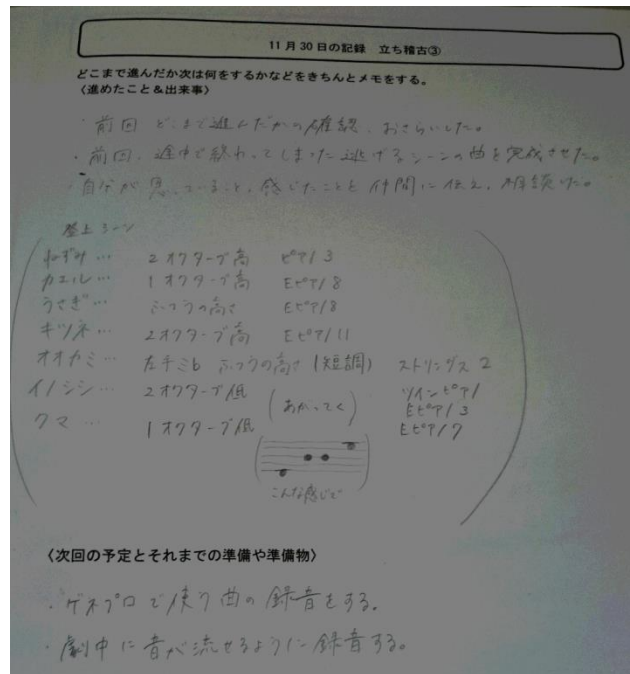 11月30日の記録 立ち稽古③
どこまで進んだか次は何をするかなどをきちんとメモをする。
〈進めたこと＆出来事〉
・前回 どこまで進んだかの確認、おさらいした。
・前回、途中で終わってしまった逃げるシーンの曲を完成させた。
・自分が思っていること、感じたことを仲間に伝え、相談した。
登上シーン
ねずみ… 2オクターブ高 ピアノ3
カエル… 1オクターブ高 Eピアノ8
うさぎ… ふつうの高さ Eピアノ8
キツネ… 2オクターブ高 Eピアノ11
オオカミ… 左手ミb ふつうの高さ (短調) ストリングス2
イノシシ… 2オクターブ低 (あがってく) ツインピアノ
Eピアノ3
クマ… 1オクターブ低 Eピアノ7
こんな感じで
〈次回の予定とそれまでの準備や準備物〉
・ゲネプロで使う曲の録音をする。
・劇中に音が流せるように録音する。